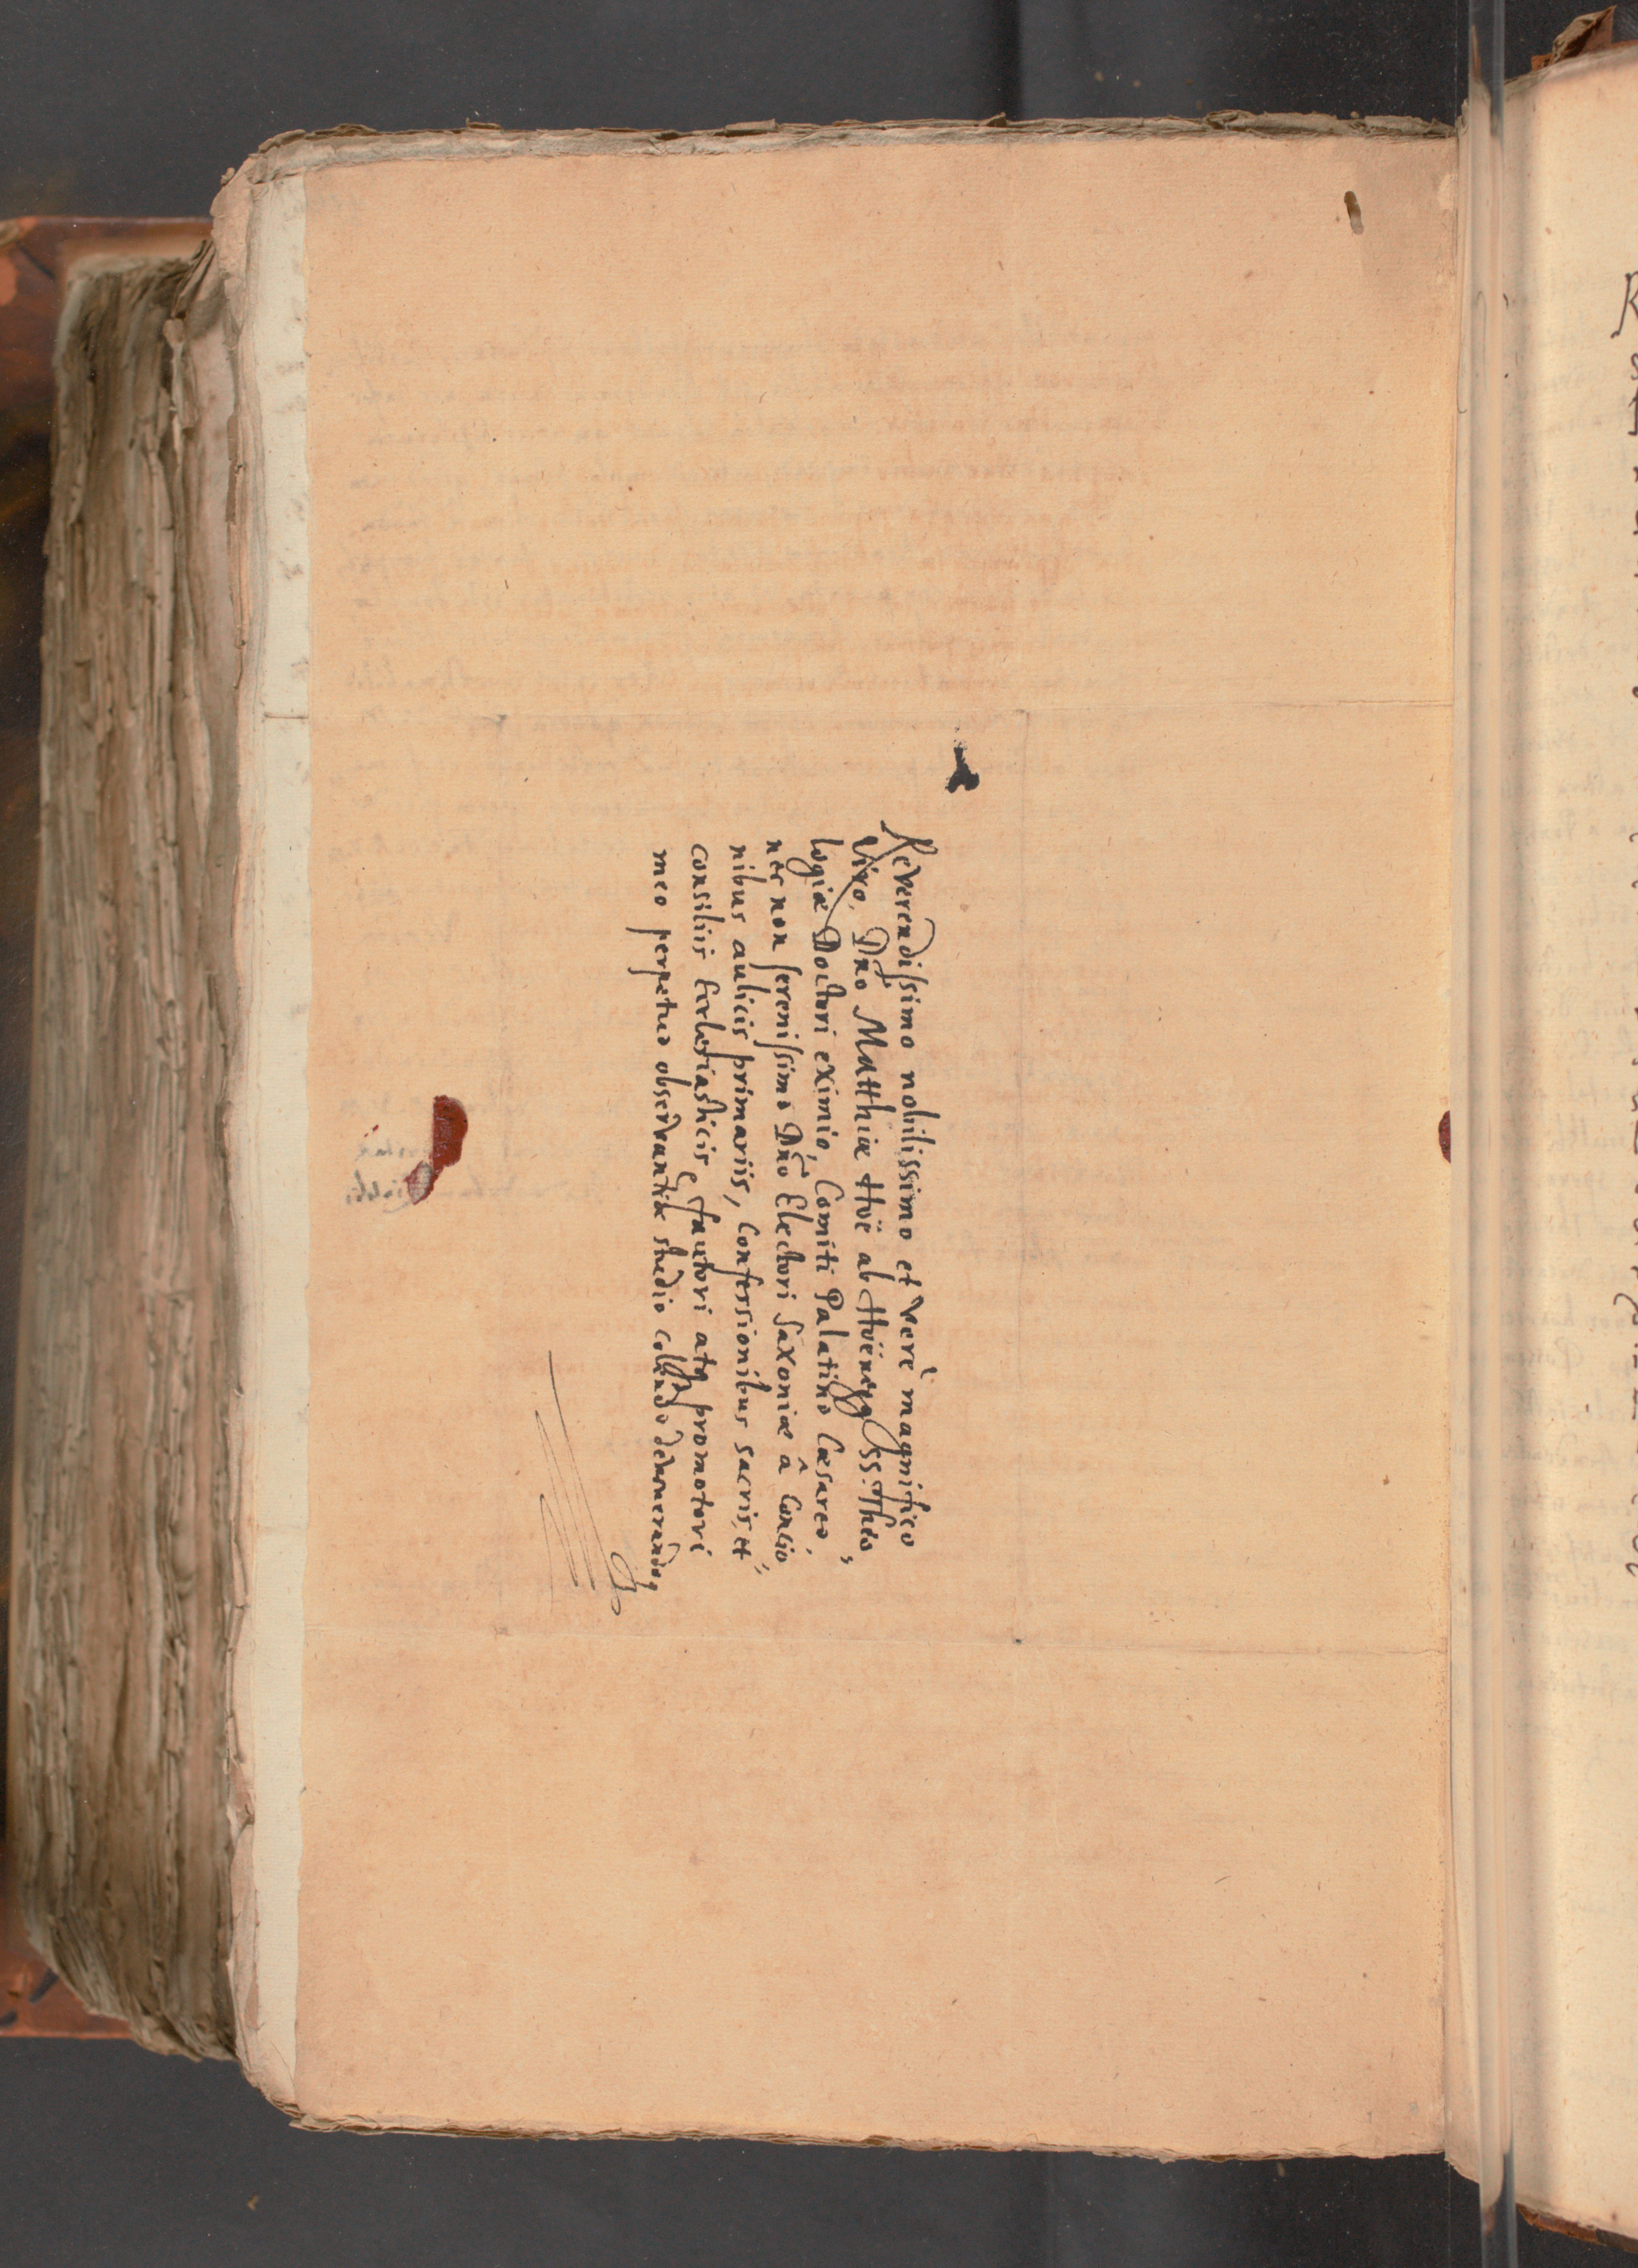 Reverendissimo nobilissimo et verè magnifico
Viro, Dño Matthiæ Hoë ab Hoënegg SS. Theo,
logiæ Doctori eximio, Comiti Palatino Cæsareo,
nec non serenissimo Dño Electori Saxoniæ â Concio
nibus aulicis primariis, Confessionibus sacris, et
consiliis Ecclesiasticis, fautori atq promotori
meo perpetuo observantiæ studio colendo